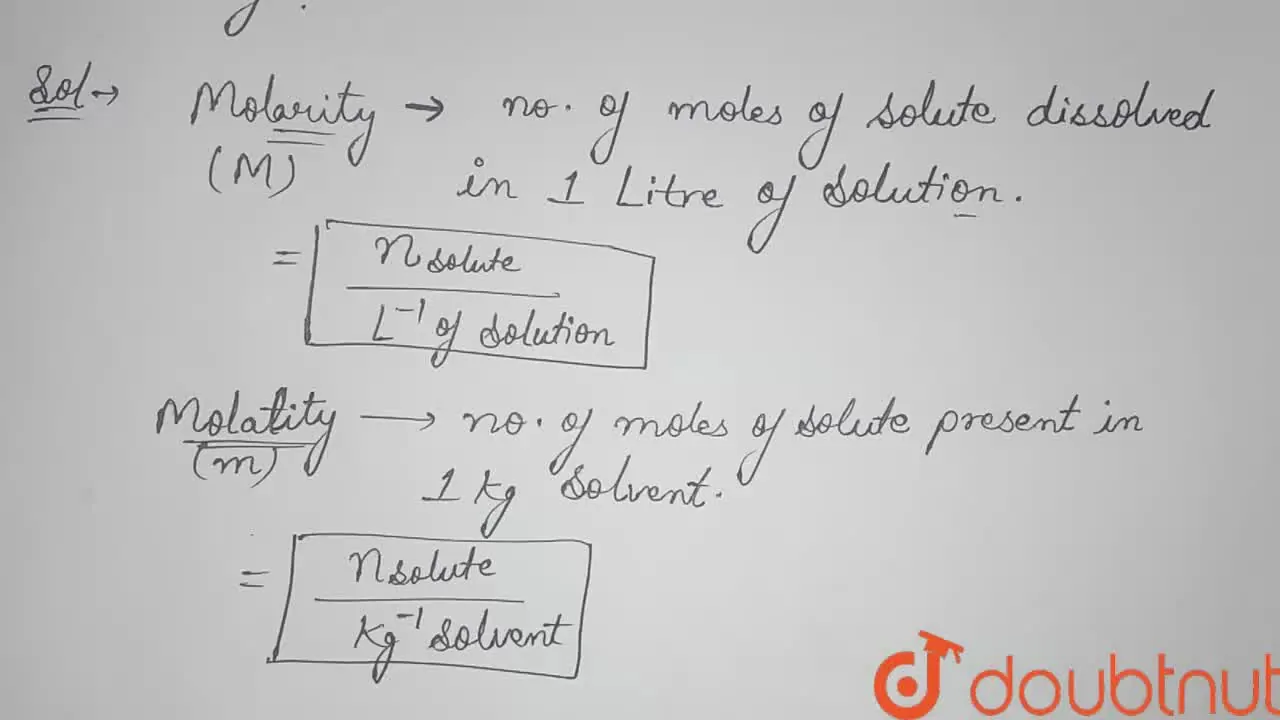 Sol → Molarity → no. of moles of solute dissolved
(M) in 1 Litre of solution.
= n solute
L⁻¹ of solution
Molality → no. of moles of solute present in
(m)
1 kg solvent.
= n solute
kg⁻¹ solvent
doubtnut